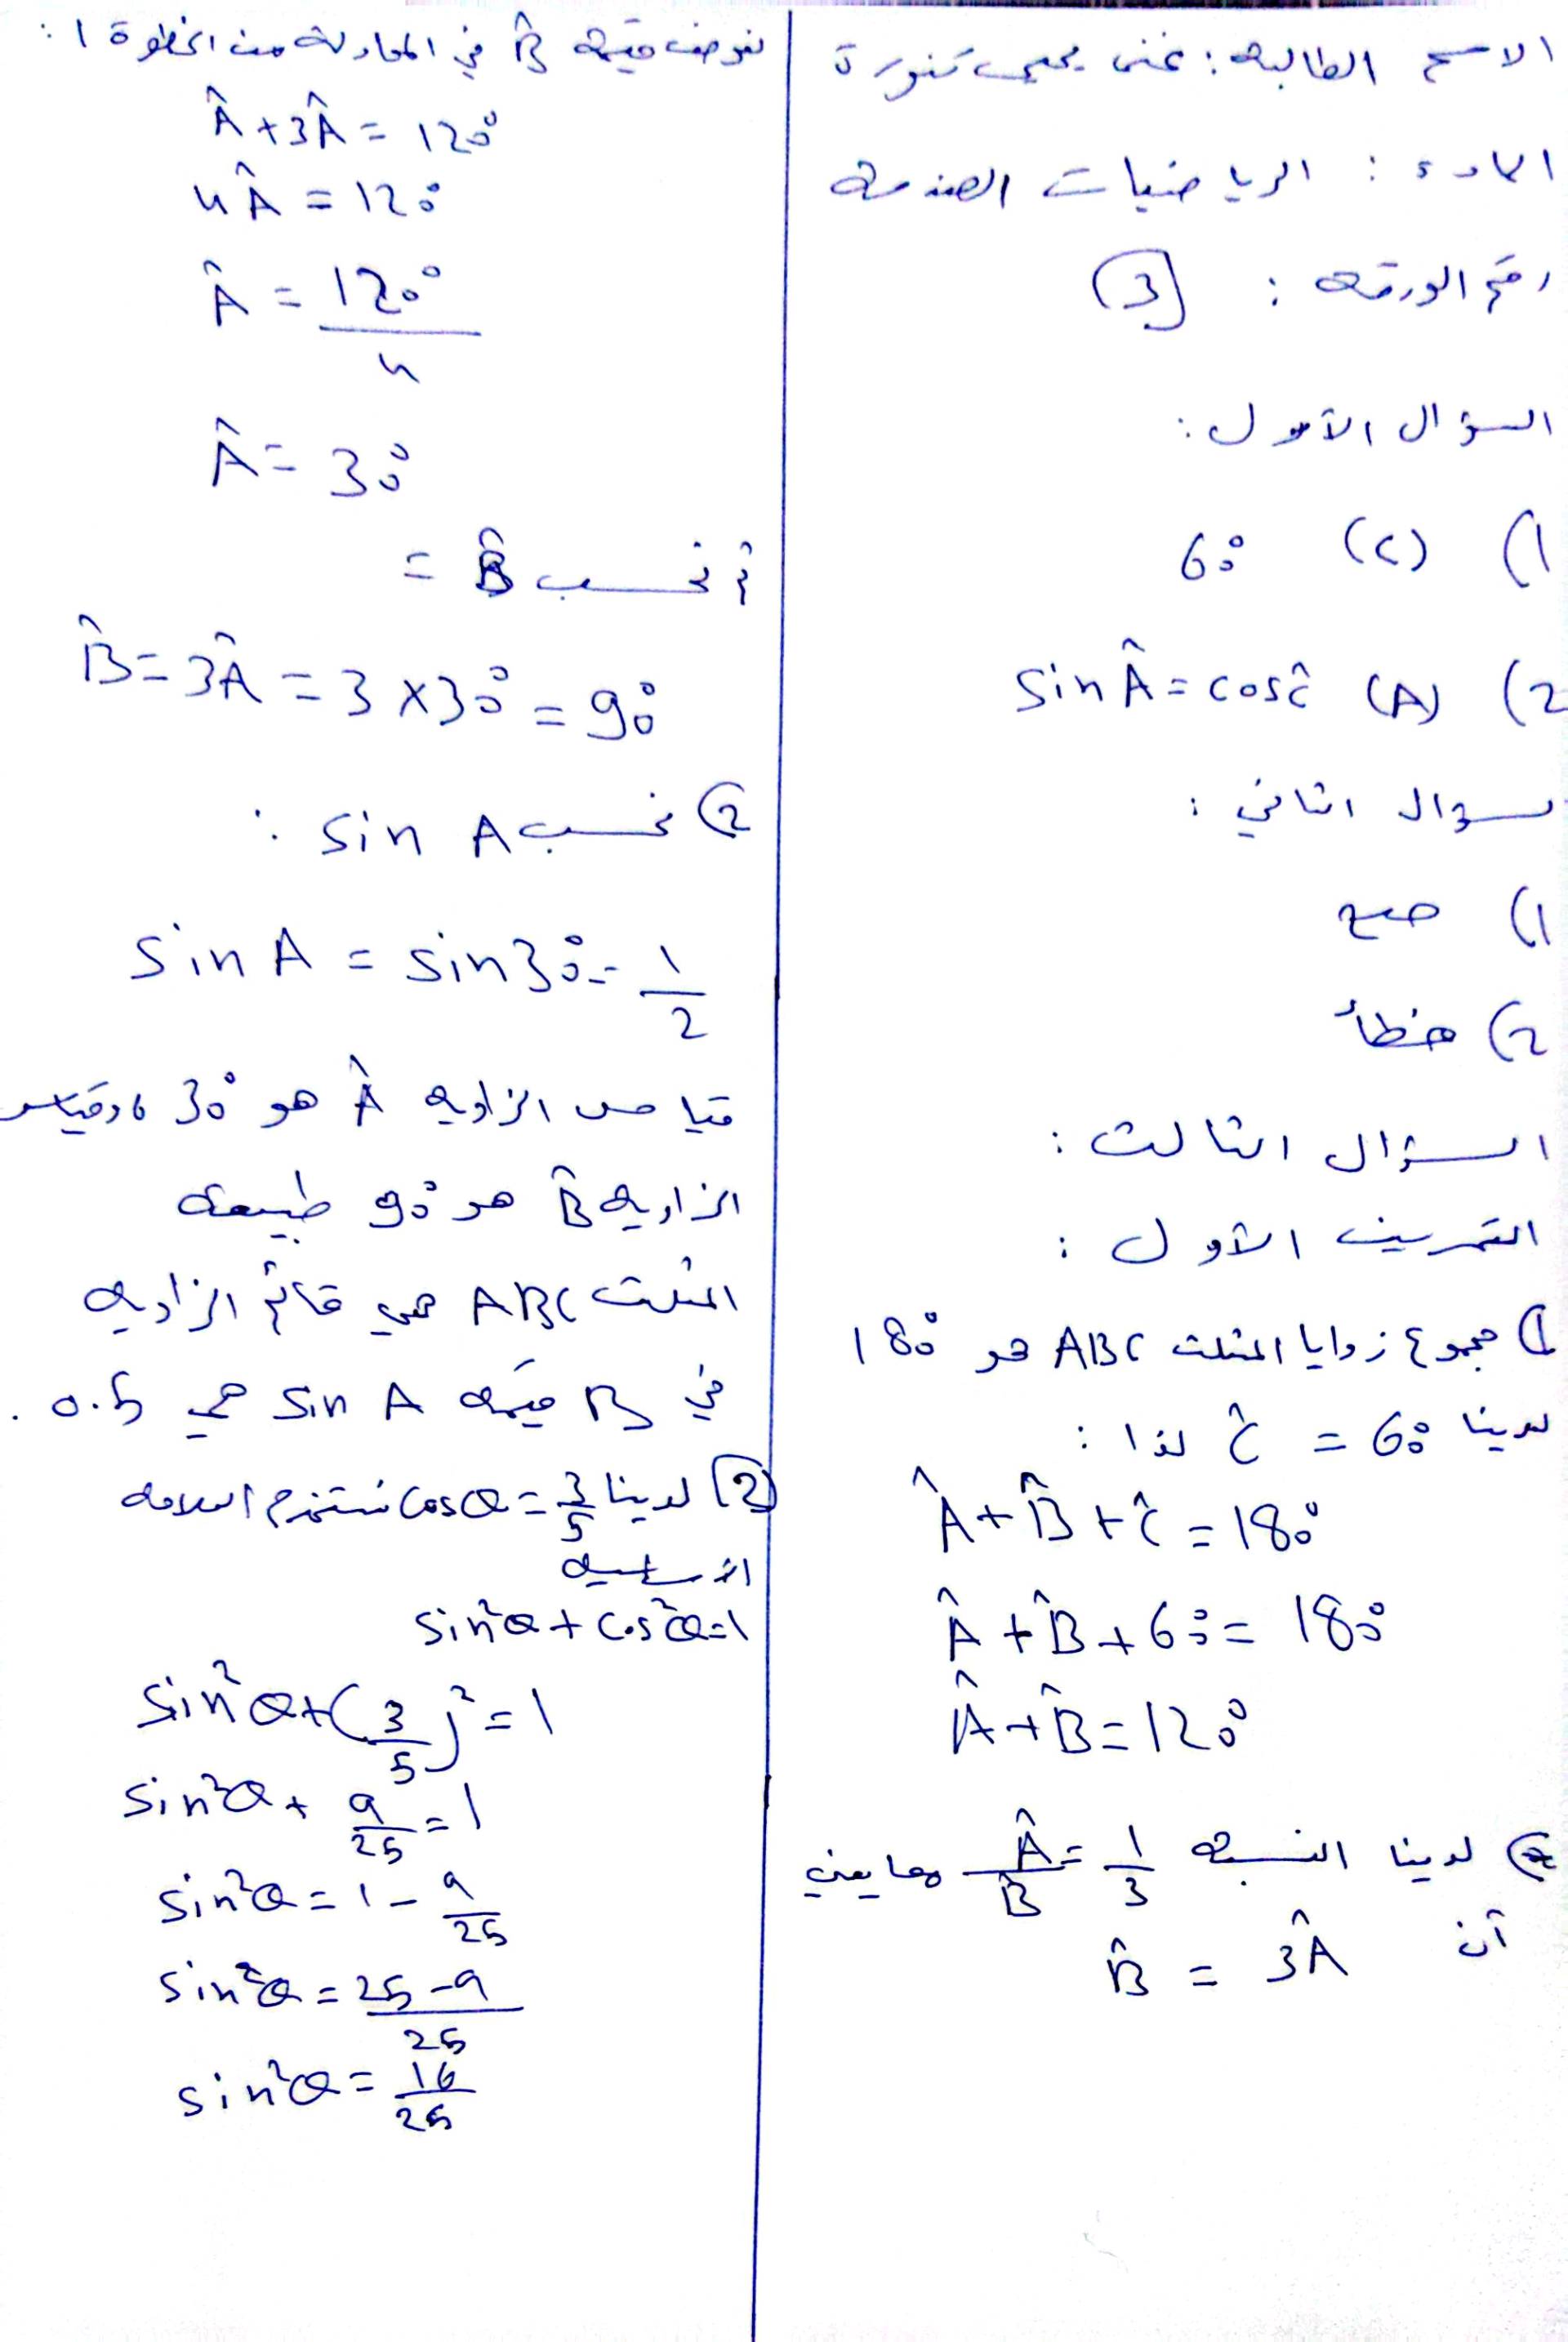 الاسم الطالبة: غنى يحيى تنورة
المادة : الرياضيات الهندسة
رقم الورقة : (3)
السؤال الأول:
1) (C) 60°
2) (A) sin Â = cos Ĉ
سؤال الثاني :
1) صح
2) خطأ
السؤال الثالث :
التمرين الأول :
① مجموع زوايا المثلث ABC هو 180°
لدينا 60° = Ĉ لذا :
Â + B̂ + Ĉ = 180°
Â + B̂ + 60° = 180°
Â + B̂ = 120°
② لدينا النسبة Â/B̂ = 1/3 مما يعني
أن B̂ = 3Â
نعوض قيمة B̂ في المعادلة من الخطوة 1 :
Â + 3Â = 120°
4Â = 120°
Â = 120°/4
Â = 30°
ثم نحسب B̂ =
B̂ = 3Â = 3 × 30° = 90°
② نحسب sin A :
sin A = sin 30° = 1/2
قياس الزاوية Â هو 30° ، وقياس
الزاوية B̂ هو 90° طبيعة
المثلث ABC هي قائم الزاوية
في B قيمة sin A هي 0.5 .
② لدينا cosθ = 3/5 نستخدم العلاقة
الأساسية
sin²θ + cos²θ = 1
sin²θ + (3/5)² = 1
sin²θ + 9/25 = 1
sin²θ = 1 - 9/25
sin²θ = 25 - 9/25
sin²θ = 16/25